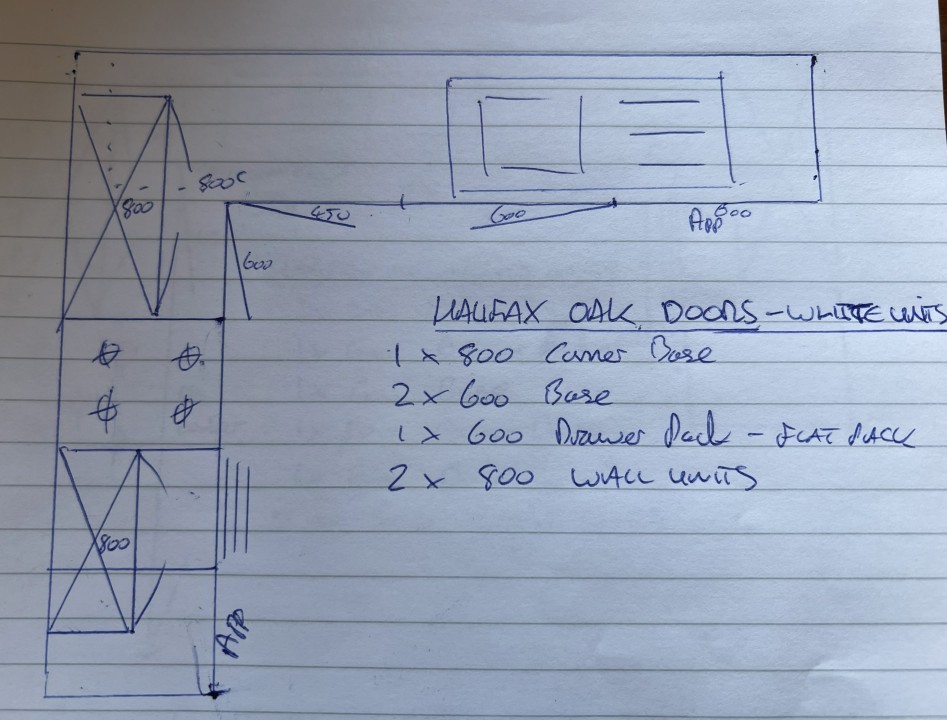 800c
800
450
600
App 600
600
HALIFAX OAK DOORS - WHITE UNITS
1 x 800 Corner Base
2 x 600 Base
1 x 600 Drawer Pack - FLAT PACK
2 x 800 WALL UNITS
800
App